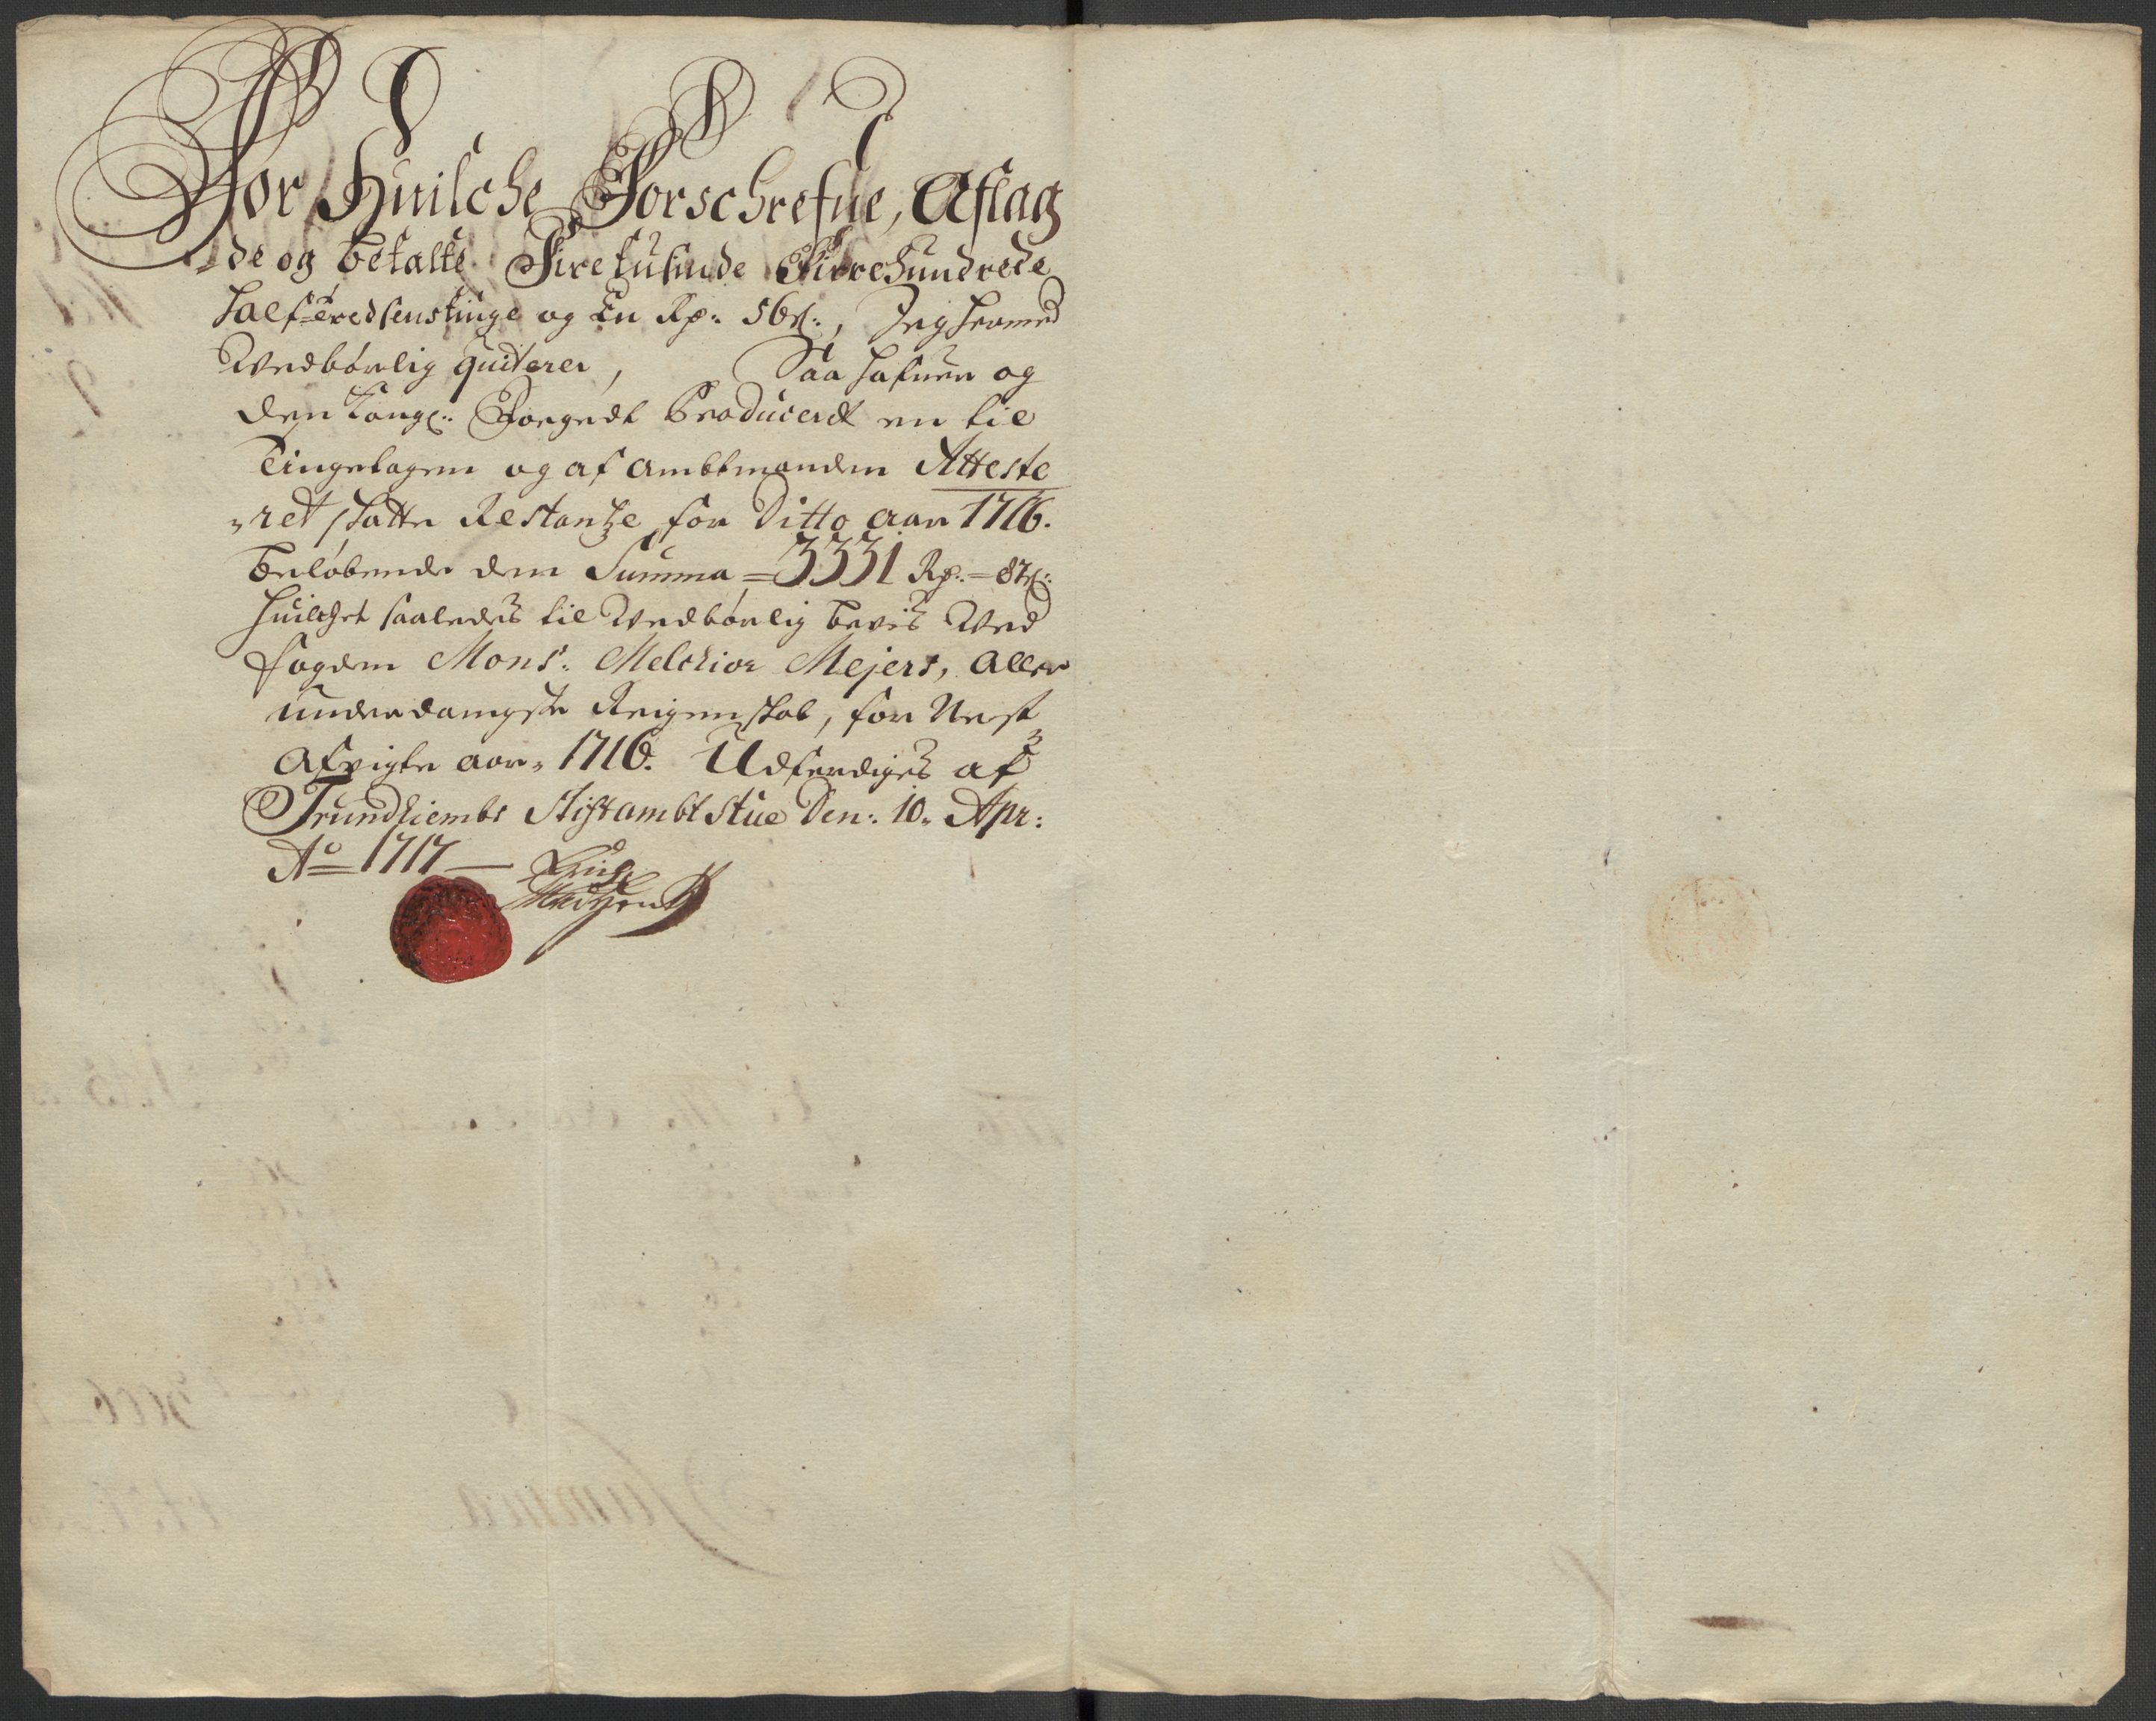 For Huilche Forschrefne, Aflag
de og betalte Firetusinde Firrehundrede
halfferedsenstiuge og En Rd: 56 s:, Jeg hermed
Wedbørlig quiterer, Saa hafuer og
den Kongl: Foegedt Produceret en til
Tingetagen og af ambtmanden Atteste
"ret skatte Restantze for Ditto aar 1716.
beløbende dem Summa = 3331 Rd: = 87 s:
huilchet saaledes til Wedbørlig beviis Wed
fogden Mons: Melchior Mejers, Aller
underdanigste Reigenskab, for Nest
afvigte aar, 1716. Udferdiges af
Trundhiembs Stiftambtstue Den: 10. Apr:
Ao 1717